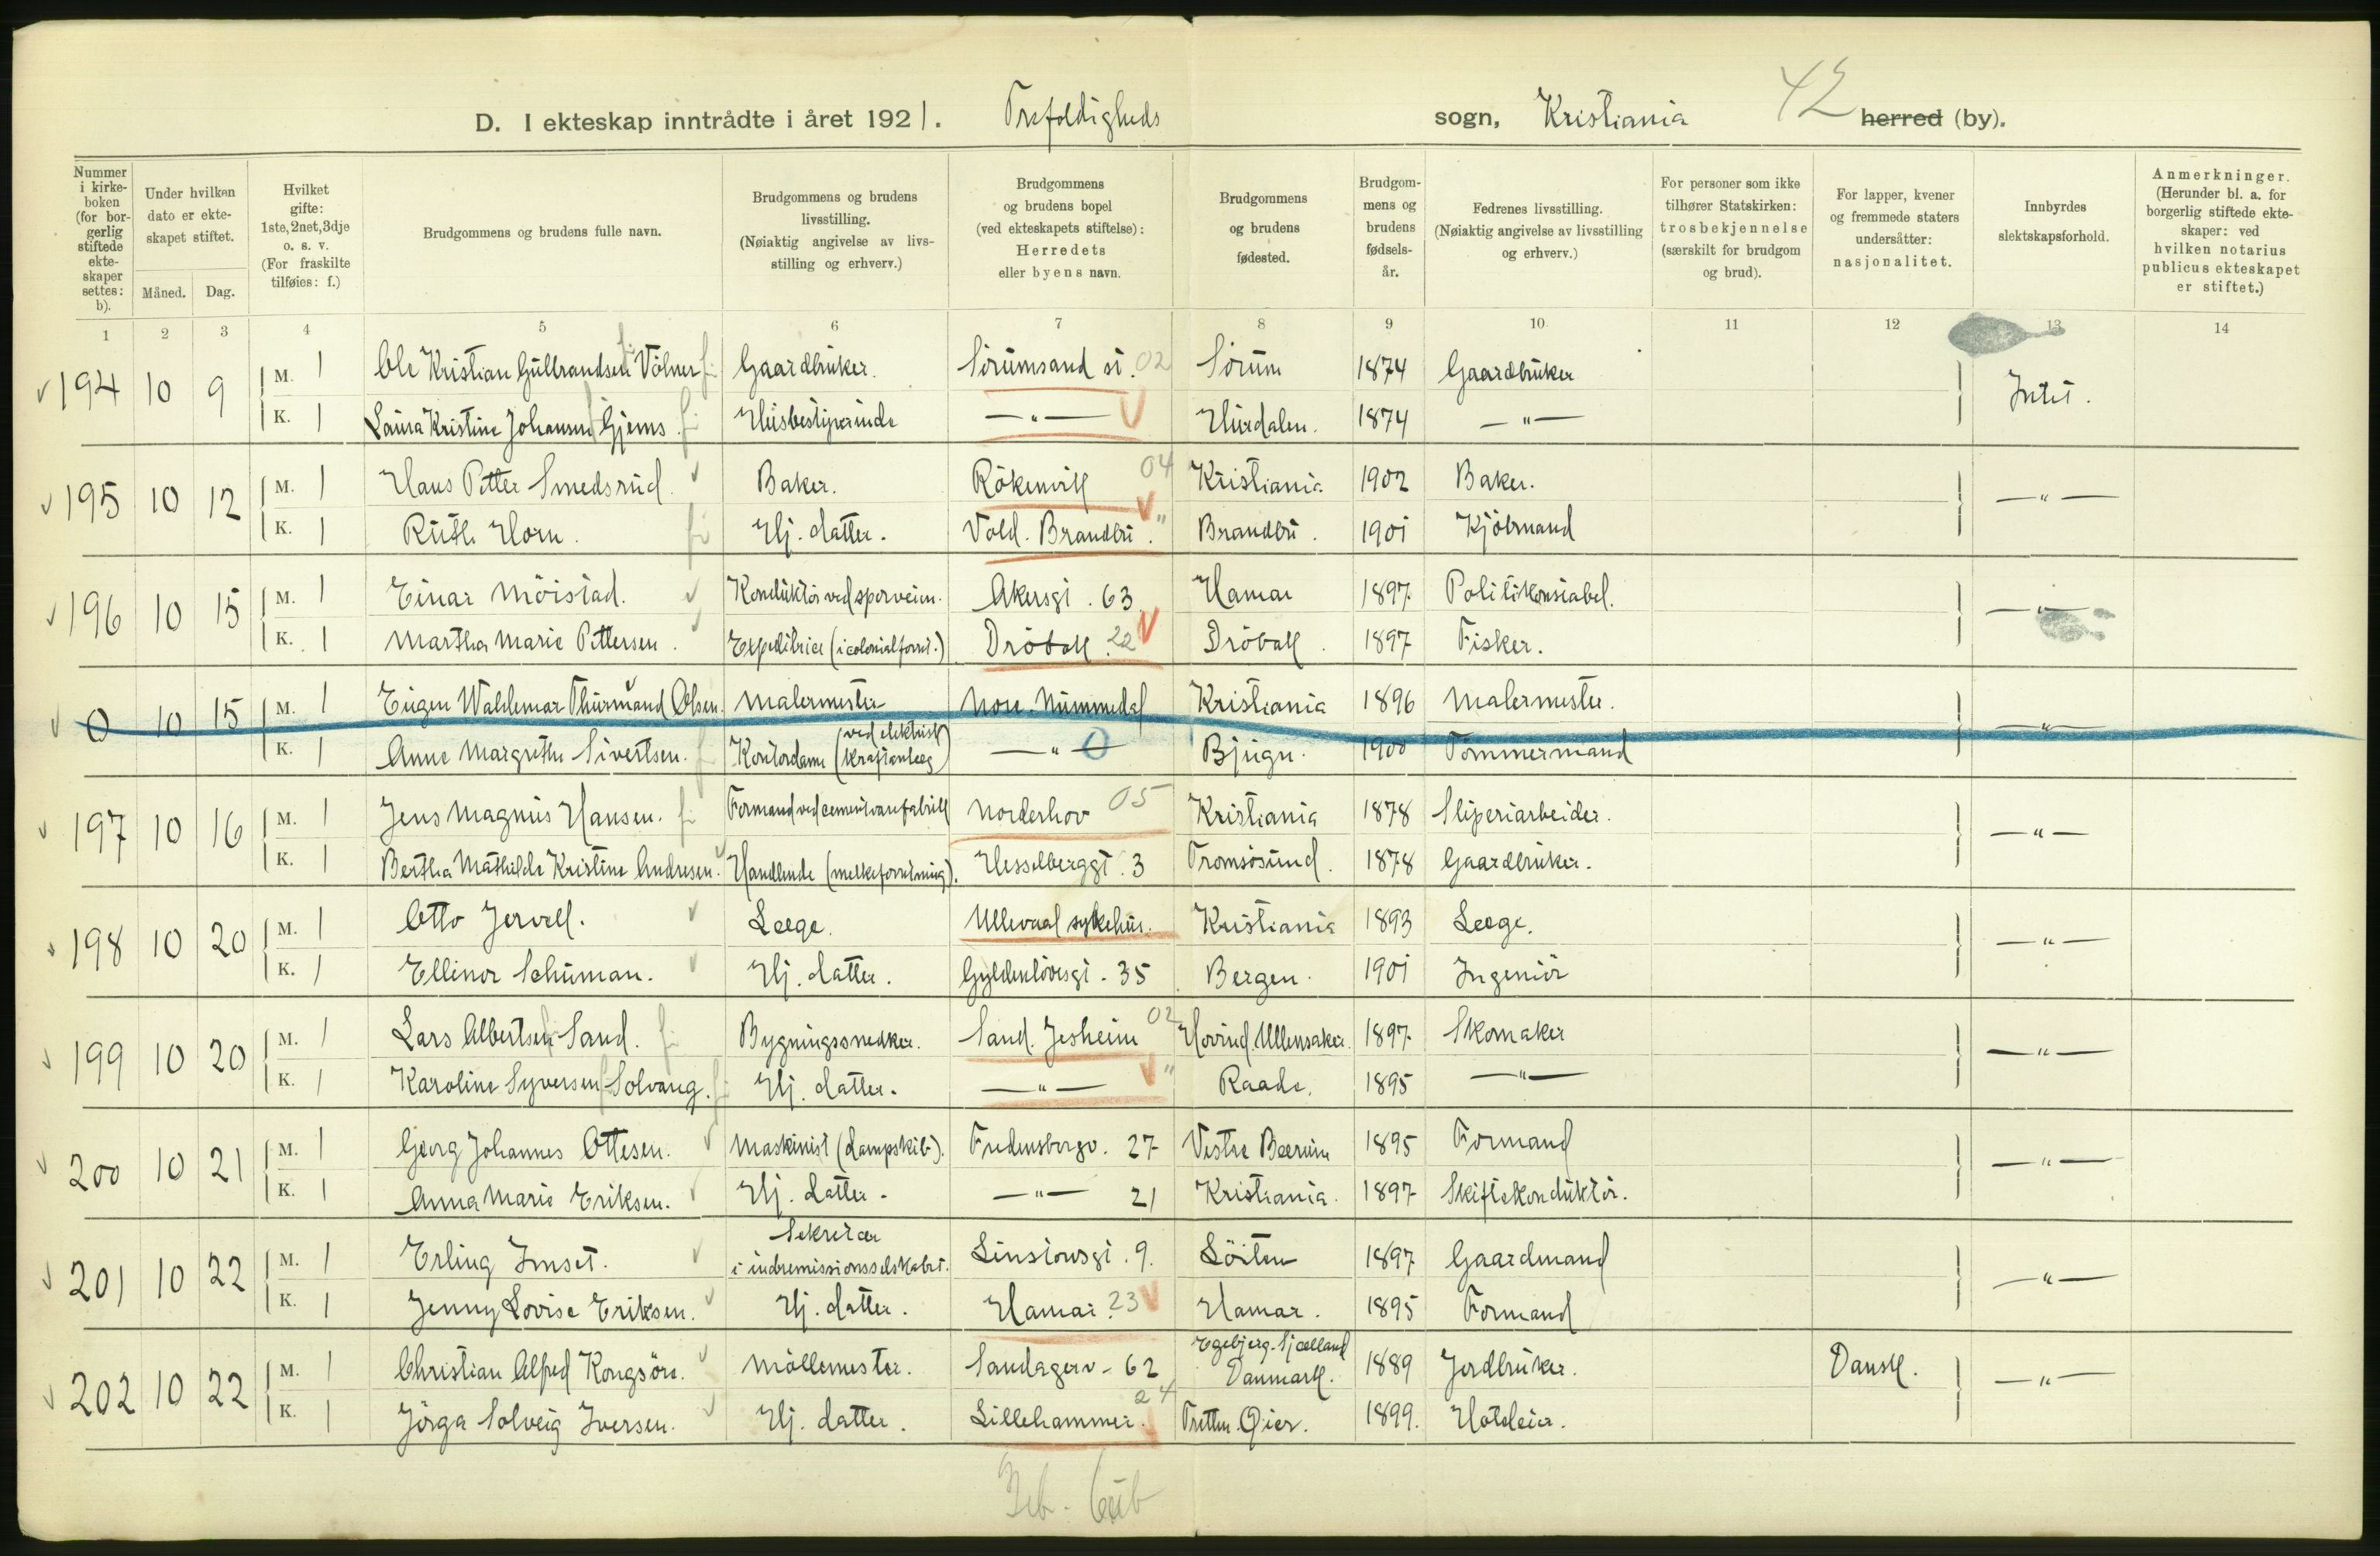 42
D. I ekteskap inntrådte i året 1921. Trefoldigheds sogn, Kristiania herred (by).
Nummer i kirkeboken (for borgerlig stiftede ekteskaper settes: b).
Under hvilken dato er ekteskapet stiftet.
Måned. Dag.
Hvilket gifte: 1ste, 2net, 3dje o. s. v. (For fraskilte tilføies: f.)
Brudgommens og brudens fulle navn.
Brudgommens og brudens livsstilling. (Nøiaktig angivelse av livsstilling og erhverv.)
Brudgommens og brudens bopel (ved ekteskapets stiftelse): Herredets eller byens navn.
Brudgommens og brudens fødested.
Brudgommens og brudens fødselsår.
Fedrenes livsstilling. (Nøiaktig angivelse av livsstilling og erhverv.)
For personer som ikke tilhører Statskirken: trosbekjennelse (særskilt for brudgom og brud).
For lapper, kvener og fremmede staters undersåtter: nasjonalitet.
Innbyrdes slektskapsforhold.
Anmerkninger. (Herunder bl. a. for borgerlig stiftede ekteskaper: ved hvilken notarius publicus ekteskapet er stiftet.)
1 2 3 4 5 6 7 8 9 10 11 12 13 14
194 10 9 M. 1 Ole Kristian Gulbrandsen Völner Gaardbruker. Sörumsand st. 02 Sörum 1874 Gaardbruker Intet.
K. 1 Laura Kristine Johansen Gjems. Husbestyrerinde —"— Hurdalen. 1874 —"—
195 10 12 M. 1 Hans Petter Smedsrud. Baker. Rökenvik 04 Kristiania 1902 Baker. —"—
K. 1 Ruth Horn. Hj. datter. Vold. Brandbu. " Brandbu. 1901 Kjöbmand
196 10 15 M. 1 Einar Möistad. Konduktör ved sporveien. Akersgt. 63. Hamar 1897 Politikonstabel. —"—
K. 1 Martha Marie Pettersen. Expeditrice (i colonialforret.) Dröbak 22 Dröbak. 1897 Fisker.
0 10 15 M. 1 Eugen Waldemar Thurmand Olsen. Malermester Nore. Nummedal Kristiania 1896 Malermester. —"—
K. 1 Anne Margrethe Sivertsen. Kontordame (ved elektrisk kraftanlæg) —"— 0 Bjugn. 1900 Tömmermand
197 10 16 M. 1 Jens Magnus Hansen. Formand ved cementvarefabrik Norderhov 05 Kristiania 1878 Sliperiarbeider. —"—
K. 1 Bertha Mathilde Kristine Andresen. Handlende (melkeforretning). Hesselberggt. 3 Tromsösund. 1878 Gaardbruker.
198 10 20 M. 1 Otto Jervell. Læge. Ullevaal sykehus. Kristiania 1893 Læge. —"—
K. 1 Ellinor Schuman. Hj. datter. Gyldenlövesgt. 35 Bergen. 1901 Ingeniör
199 10 20 M. 1 Lars Albertsen Sand. Bygningssnedker. Sand. Jesheim 02 Hovind. Ullensaker. 1897 Skomaker —"—
K. 1 Karoline Syversen Solvang. Hj. datter. —"— " Raade. 1895 —"—
200 10 21 M. 1 Georg Johannes Ottesen. Maskinist (dampskib). Fredensborgv. 27 Vestre Bærum 1895 Formand —"—
K. 1 Anna Marie Eriksen. Hj. datter. —"— 21 Kristiania. 1897 Skiftekonduktör.
201 10 22 M. 1 Erling Imset. Sekretær i indremissionsselskabet. Linstowsgt. 9. Löiten 1897 Gaardmand —"—
K. 1 Jenny Lovise Eriksen. Hj. datter. Hamar. 23 Hamar. 1895 Formand
202 10 22 M. 1 Christian Alfred Kongsöre. Möllemester. Sandagerv. 62 Egebjerg. Sjælland Danmark. 1889 Jordbruker. Dansk. —"—
K. 1 Jörga Solveig Iversen. Hj. datter. Lillehammer. 24 Tretten. Öier. 1899. Hoteleier.